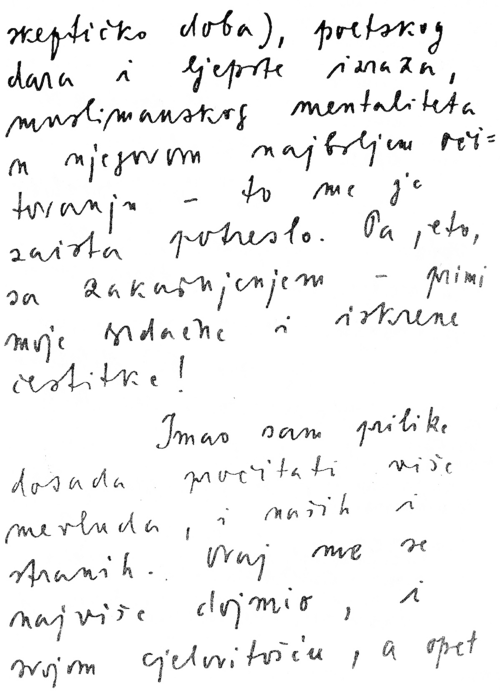 skeptičko doba), poetskog
dara i ljepote izraza,
muslimanskog mentaliteta
u njegovom najboljem oči=
tovanju - to me je
zaista potreslo. Pa, eto,
sa zakašnjenjem - primi
moje srdačne i iskrene
čestitke!
Imao sam prilike
dosada pročitati više
mevluda, i naših i
stranih. Ovaj me se
najviše dojmio, i
svojom cjelovitošću, a opet